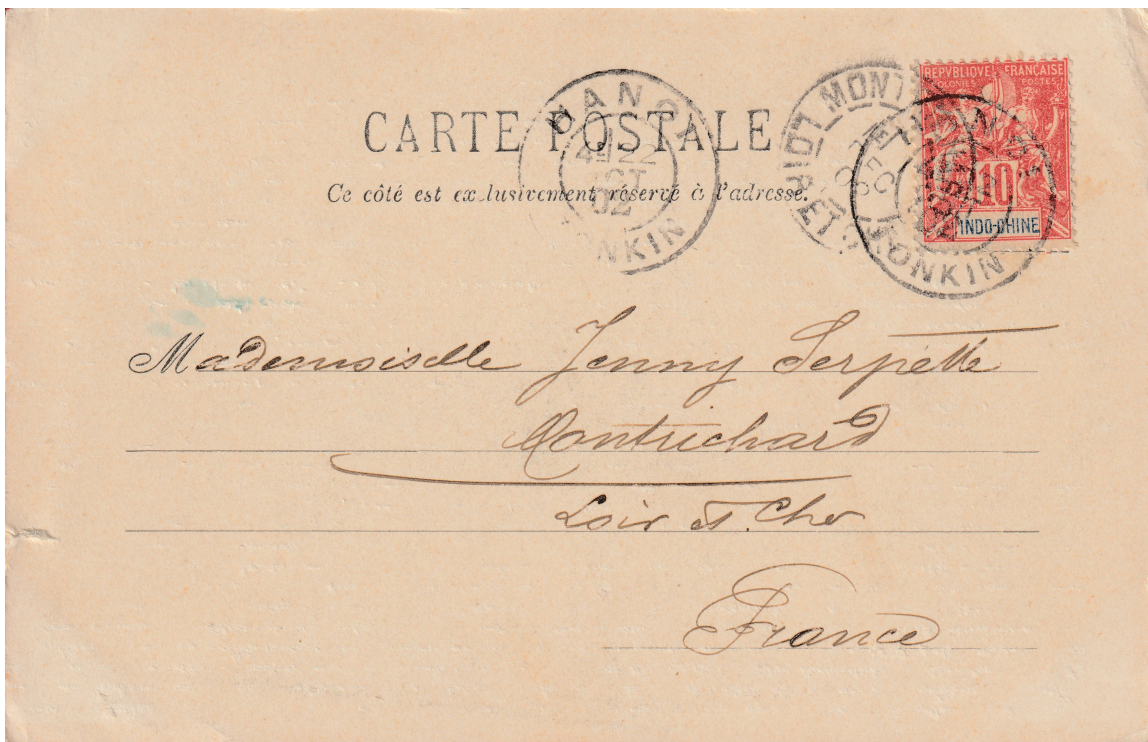 CARTE POSTALE
Ce côté est exclusivement réservé à l'adresse.
HANOI
22
OCT
02
TONKIN
MONT
LOIR ET
DEC
TONKIN
REPVBLIQVE FRANÇAISE
COLONIES POSTES
10
INDO-CHINE
Mademoiselle Jenny Serpette
Montrichard
Loir et Cher
France